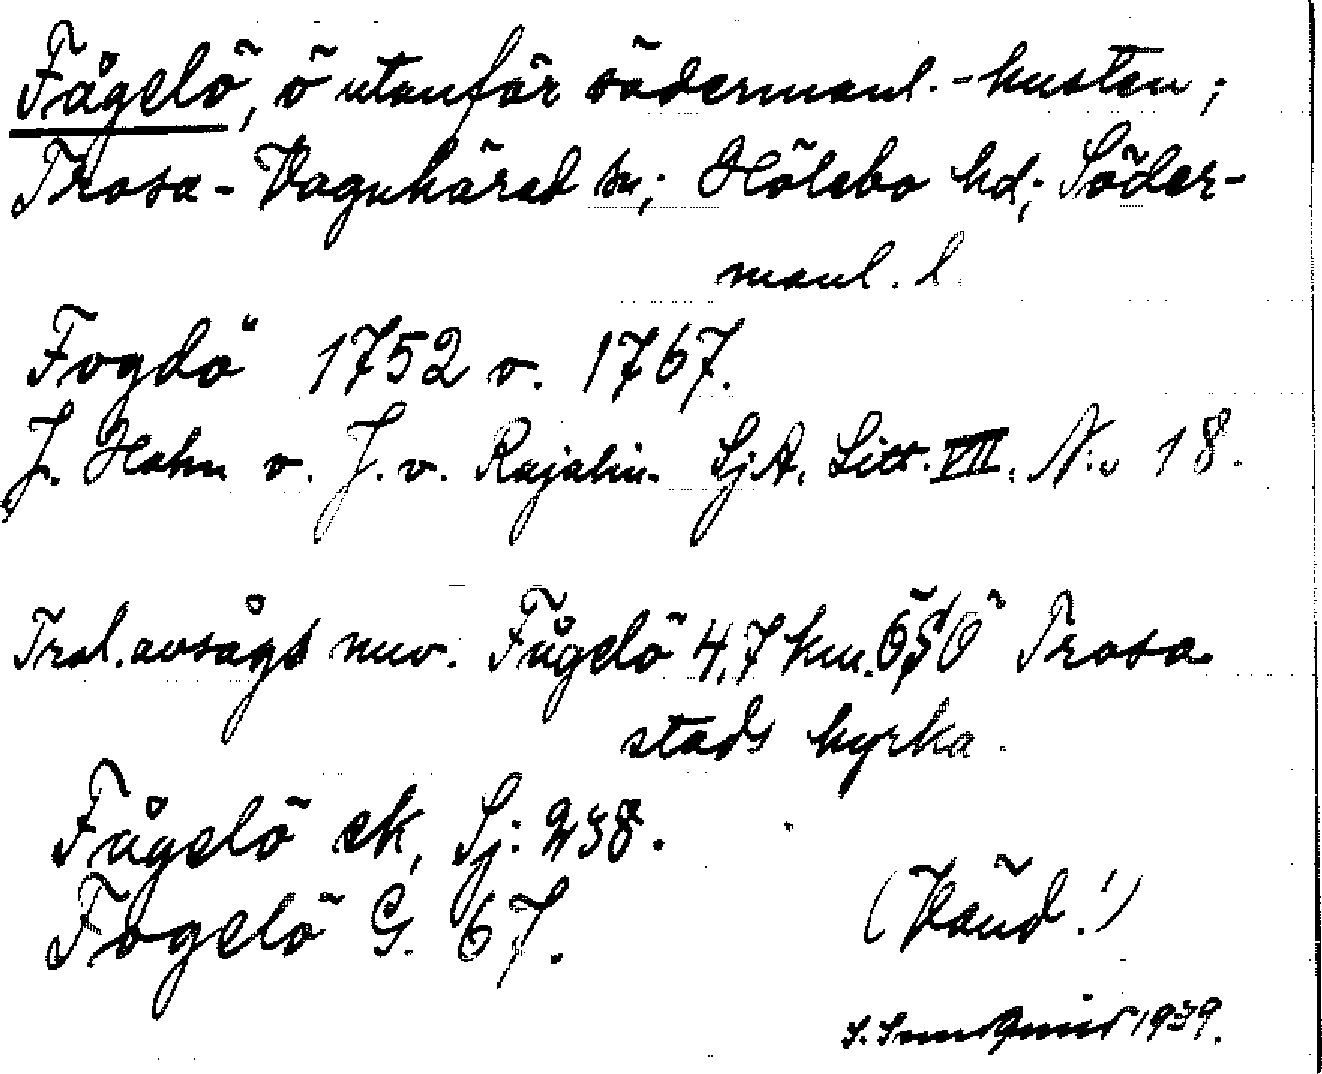 Fågelö, ö utanför södermanl.-kusten;
Trosa-Vagnhärad sn; Hölebo hd; Söder-
manl. l.
Fogdö 1752 o. 1767.
J. Hahn o. J. v. Rajalin. SjA. Litt. VII. No 18.
Trol. avsågs nuv. Fågelö 4,7 km. ÖSÖ Trosa
stads kyrka.
Fågelö ek, Sj: 238.
Fogelö G. 67.
(Vänd!)
1939.